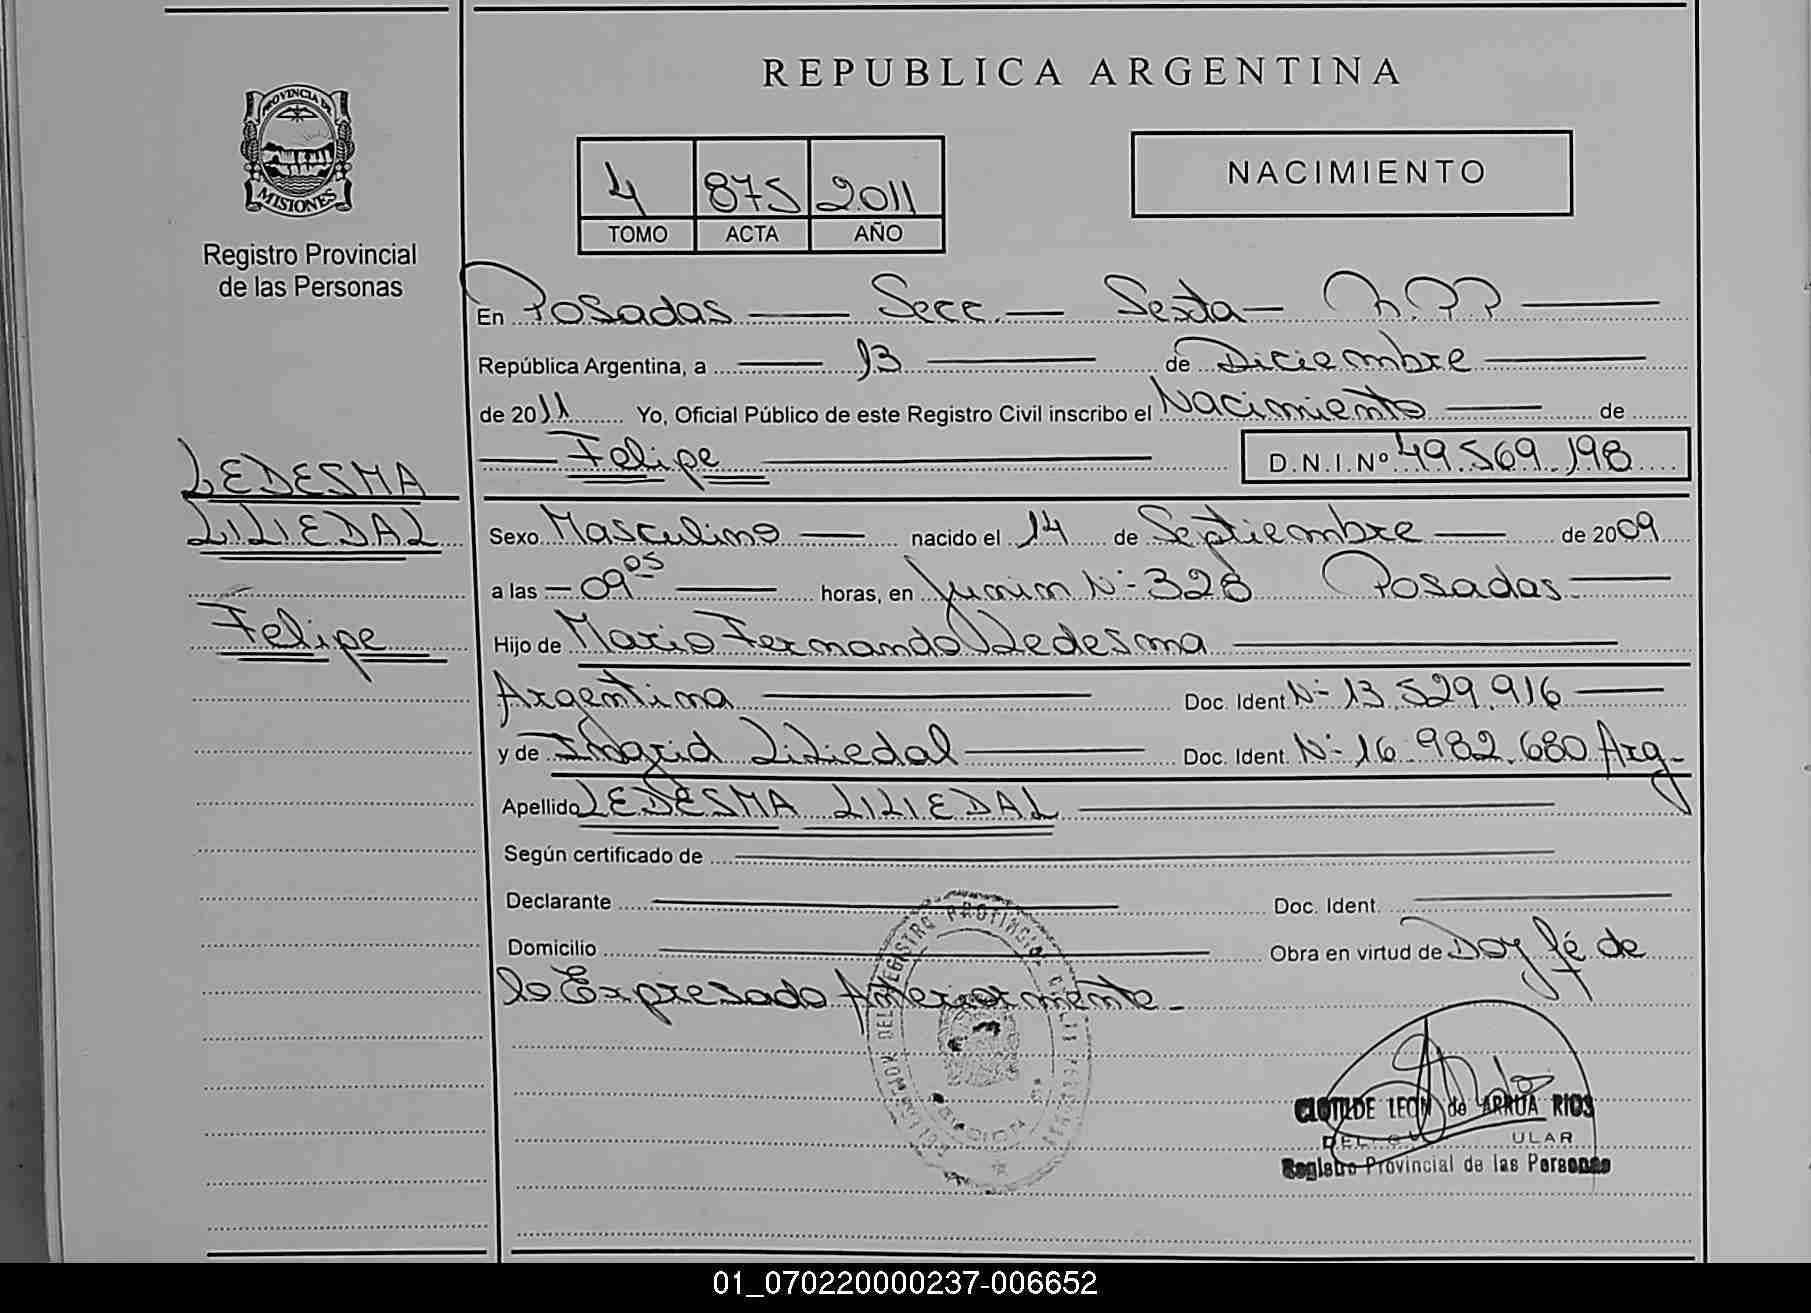 REPUBLICA ARGENTINA
PROVINCIA DE
MISIONES
Registro Provincial
de las Personas
4 875 2011
TOMO ACTA AÑO
NACIMIENTO
En Posadas — Secc. — Sexta — R.P.P —
República Argentina, a — 13 — de Diciembre —
de 2011 Yo, Oficial Público de este Registro Civil inscribo el Nacimiento — de
— Felipe — D.N.I.Nº 49.569.198
LEDESMA
LILIEDAL
Felipe
Sexo Masculino — nacido el 14 de Septiembre — de 2009
a las — 09 05 — horas, en Junin Nº 328 Posadas —
Hijo de Mario Fernando Ledesma —
Argentina — Doc. Ident. Nº 13.529.916 —
y de Ingrid Liliedal — Doc. Ident. Nº 16.982.680 Arg.
Apellido LEDESMA LILIEDAL —
Según certificado de —
Declarante — Doc. Ident. —
Domicilio — Obra en virtud de Doy fé de
lo Expresado Anteriormente.
CLOTILDE LEON de ARRUA RIOS
ULAR
Registro Provincial de las Personas
01_070220000237-006652